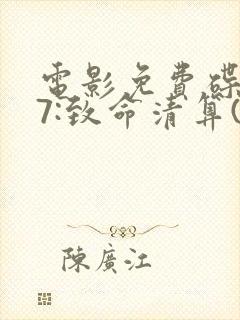 電影免費碟
7:致命清算(
陳廣江